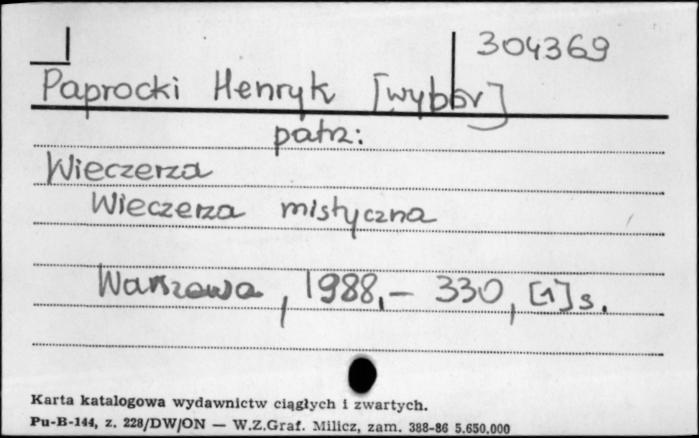 304369
Paprocki Henryk [wybór]
patrz:
Wieczerza
Wieczerza mistyczna
Warszawa, 1988,- 330, [1] s.
Karta katalogowa wydawnictw ciągłych i zwartych.
Pu-B-144, z. 228/DW/ON — W.Z.Graf. Milicz, zam. 388-86 5.650.000